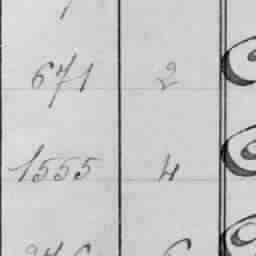 671 2
1555 4